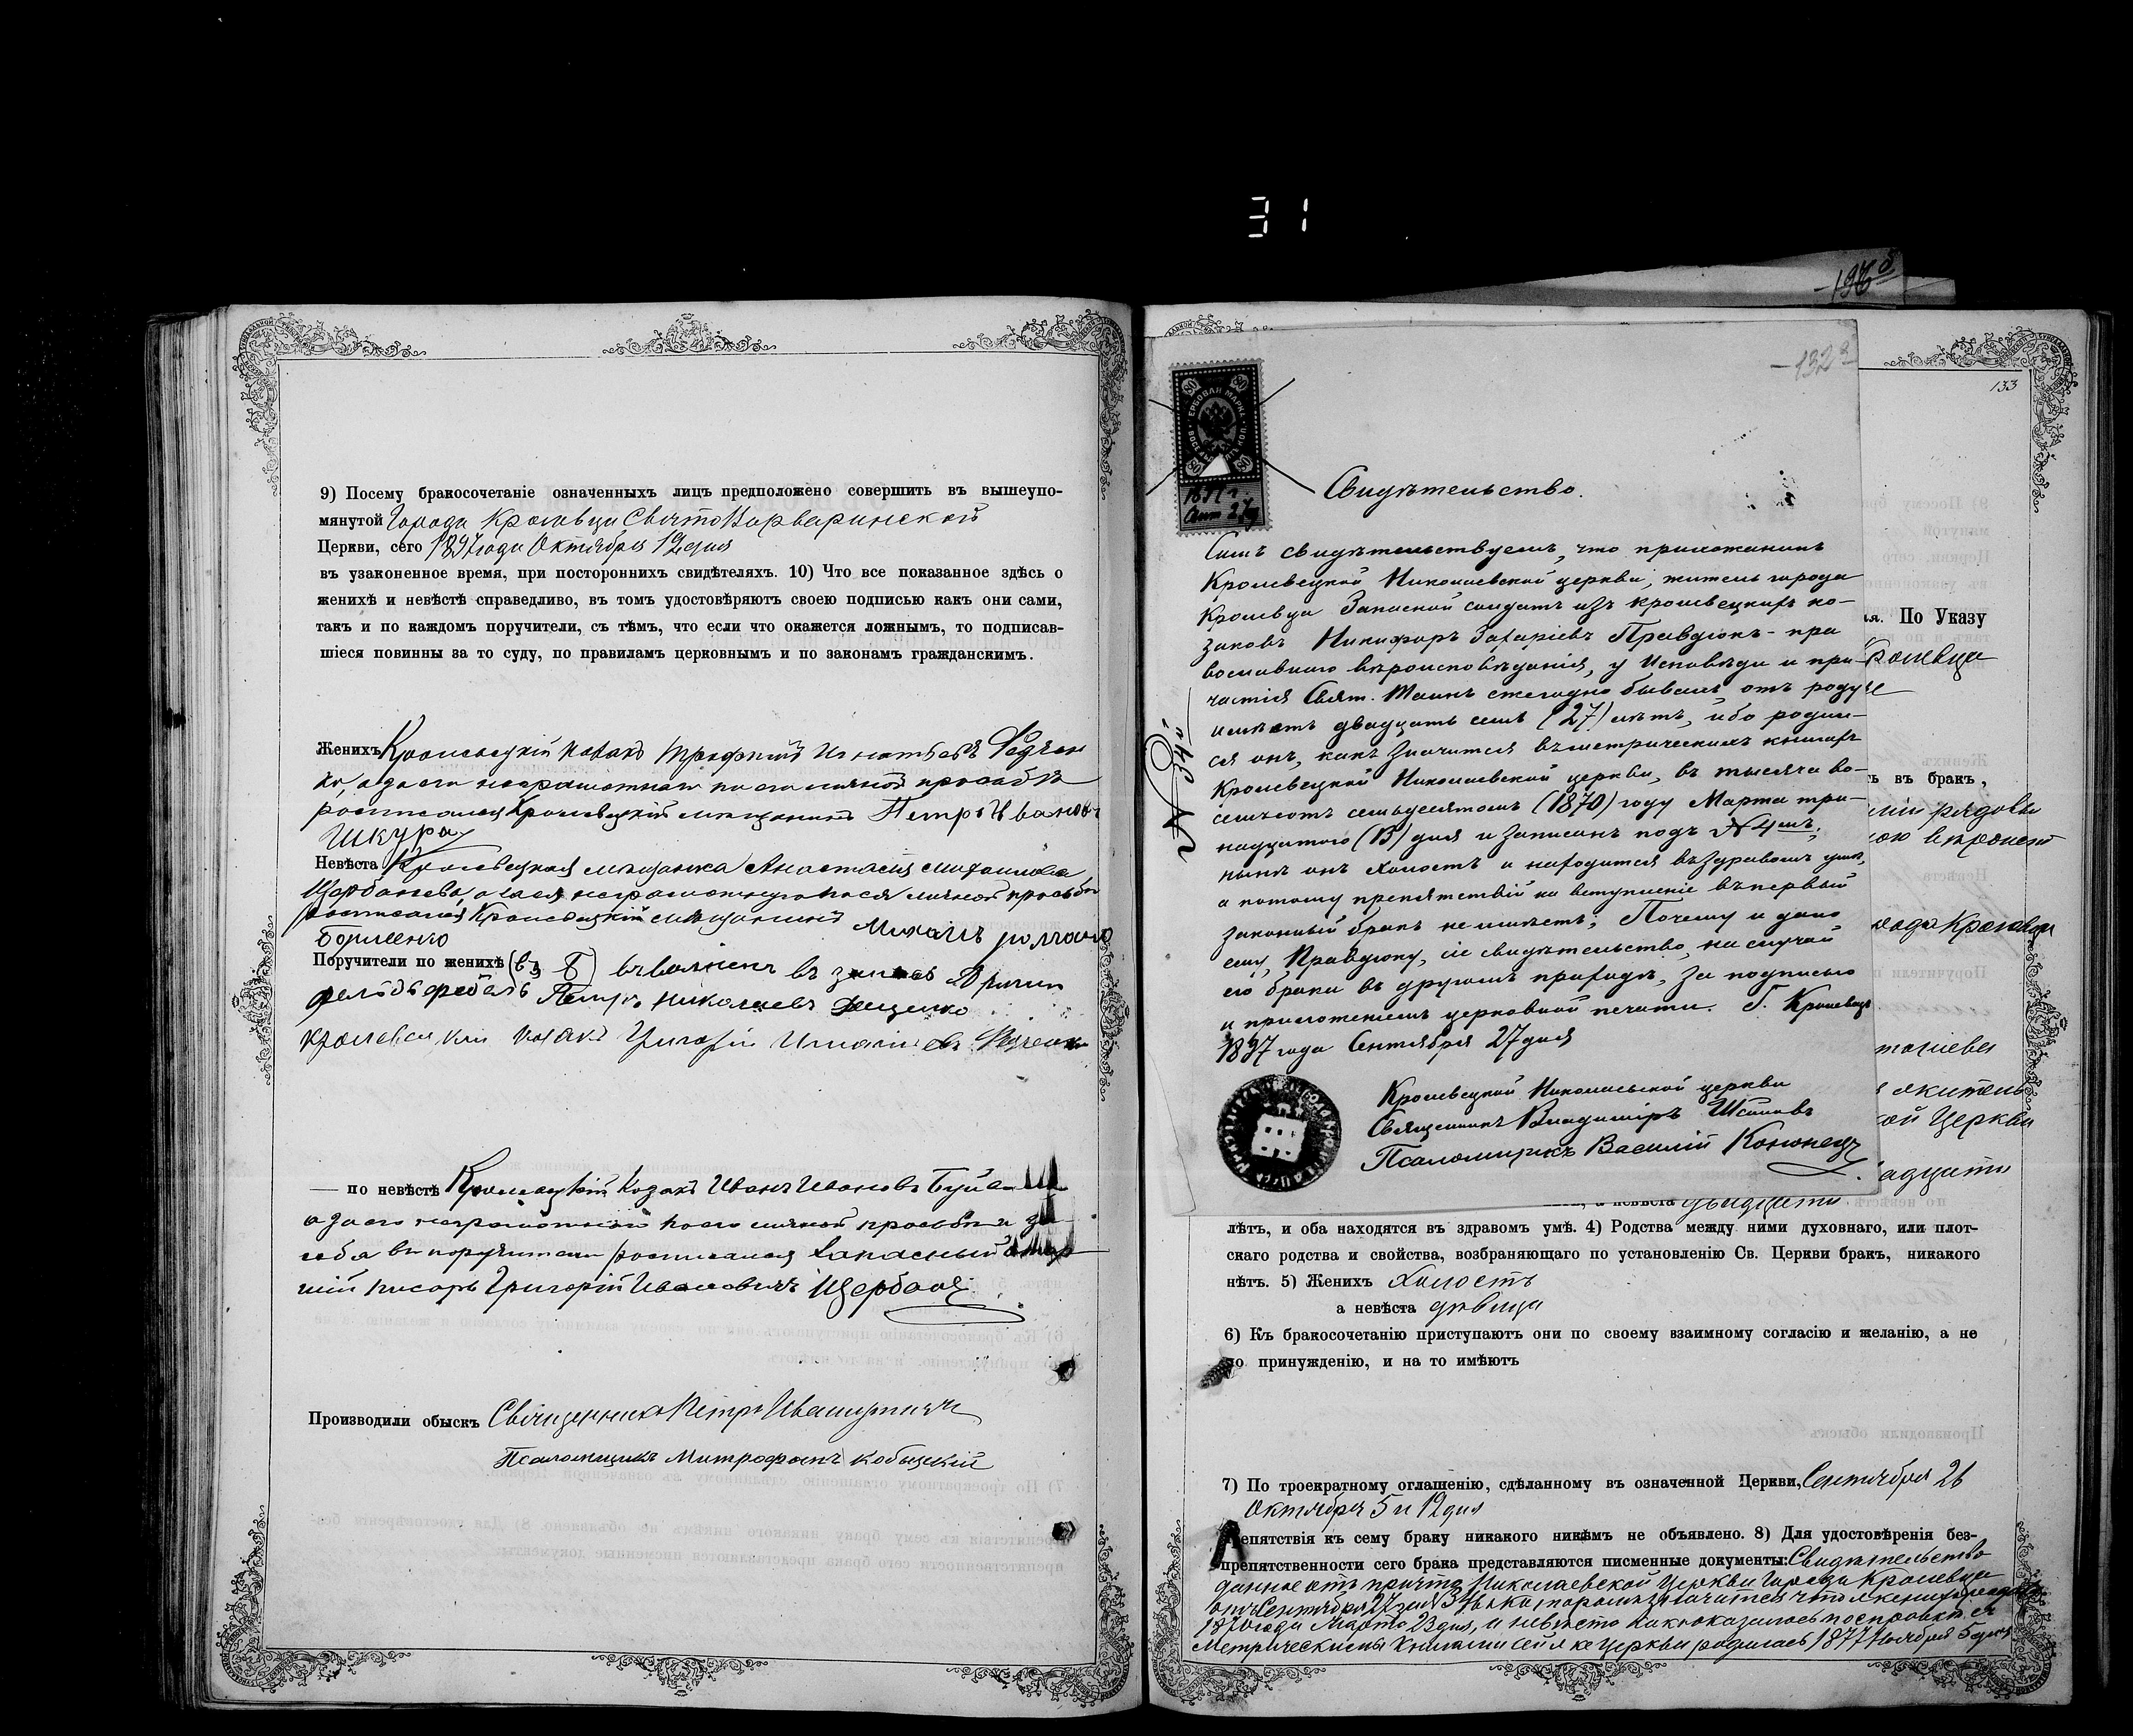 31
9) Посему бракосочетаніе означенныхъ лицъ предположено совершить въ вышеупо-
мянутой Города Кролевца Свято Варваринской
Церкви, сего 1897 года Октября 19 дня
въ узаконенное время, при постороннихъ свидѣтеляхъ. 10) Что все показанное здѣсь о
женихѣ и невѣстѣ справедливо, въ томъ удостовѣряютъ своею подписью какъ они сами,
такъ и по каждомъ поручители, съ тѣмъ, что если что окажется ложнымъ, то подписав-
шіеся повинны за то суду, по правиламъ церковнымъ и по законамъ гражданскимъ.
Женихъ Кролевецкій козакъ Трофимъ Игнатьевъ Федчен
ко, а за его неграмотнаго по его личной просьбѣ
росписался Кролевецкій мещанинъ Петръ Ивановъ
Шкура
Невѣста Кролевецкая мещанка Анастасія
Щербакова, а за ея неграмотную по ея личной просьбѣ
росписался Кролевецкій мещанинъ Михаилъ
Борисенко
Поручители по женихѣ въ запасъ Арміи
фельдфебель Петръ Николаевъ Яценко
Кролевецкій козакъ Григорій Игнатіевъ Федченко
— по невѣстѣ Кролевецкій Козакъ Иванъ Ивановъ
а за его неграмотнаго по его личной просьбѣ и за
себя въ поручители росписался Запасный стар
шій писарь Григорій Ивановичъ Щербакъ
Производили обыскъ Священникъ Петръ
Псаломщикъ Митрофанъ Кобыцкій
-132а
133
ЕРБОВАЯ МАРКА
80
1897 г.
Сент 27 д
Свидѣтельство.
Симъ свидѣтельствуемъ, что прихожанинъ
Кролевецкой Николаевской церкви, житель города
Кролевца Запасной солдатъ изъ кролевецкихъ ко-
заковъ Никифоръ Захаріевъ Правдюкъ - пра
вославнаго вѣроисповѣданія, у Исповѣди и при-
частія Свят. Таинъ ежегодно бываетъ, отъ роду
имѣетъ двадцать семь (27) лѣтъ, ибо родил-
ся онъ, какъ значится въ метрическихъ книгахъ
Кролевецкой Николаевской церкви, въ тысяча во-
семьсотъ семьдесятомъ (1870) году Марта три-
надцатого (13) дня и записанъ подъ № 4мъ;
нынѣ онъ холостъ и находится въ здравомъ умѣ,
а потому препятствій ко вступленію въ первый
законный бракъ не имѣетъ; Почему и дано
ему, Правдюку, сіе свидѣтельство, на случай
его брака въ другомъ приходѣ, за подписью
и приложеніемъ церковной печати. Г. Кролевецъ
1897 года Сентября 27 дня
Кролевецкой Николаевской церкви
Священникъ Владиміръ
Псаломщикъ Василій
№ 34й
ія. По Указу
Кролевца
ть въ бракъ,
рядовы
города Кролевца
житель
кой Церкви
адцати
а невѣста двадцати
лѣтъ, и оба находятся въ здравомъ умѣ. 4) Родства между ними духовнаго, или плот-
скаго родства и свойства, возбраняющаго по установленію Св. Церкви бракъ, никакого
нѣтъ. 5) Женихъ Холостъ
а невѣста дѣвица
6) Къ бракосочетанію приступаютъ они по своему взаимному согласію и желанію, а не
по принужденію, и на то имѣютъ
7) По троекратному оглашенію, сдѣланному въ означенной Церкви, Сентября 26
Октября 5 и 12 дня
препятствія къ сему браку никакого никѣмъ не объявлено. 8) Для удостовѣренія без-
препятственности сего брака представляются писменные документы: Свидѣтельство
данное отъ причта Николаевской Церкви Города Кролевца
отъ Сентября 27 дня № 34 въ которомъ значится что женихъ родился
1870 года Марта 23 дня, и невѣста какъ оказалось по справкѣ съ
Метрическими Книгами сей же Церкви родилась 1877 Ноября 5 дня